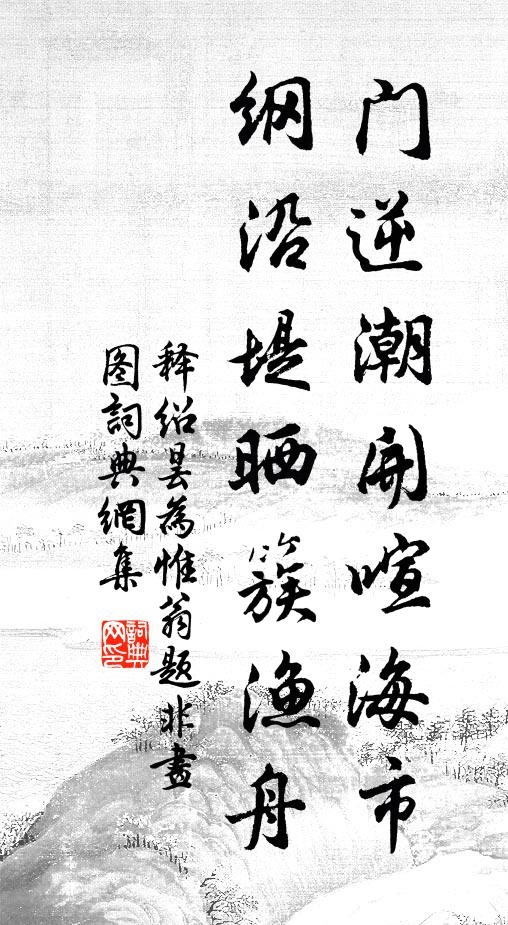 门逆潮开喧海市
纲沿堤晒簇渔舟
释绍昙为惟翁题非画
图词典網集
詞典网印